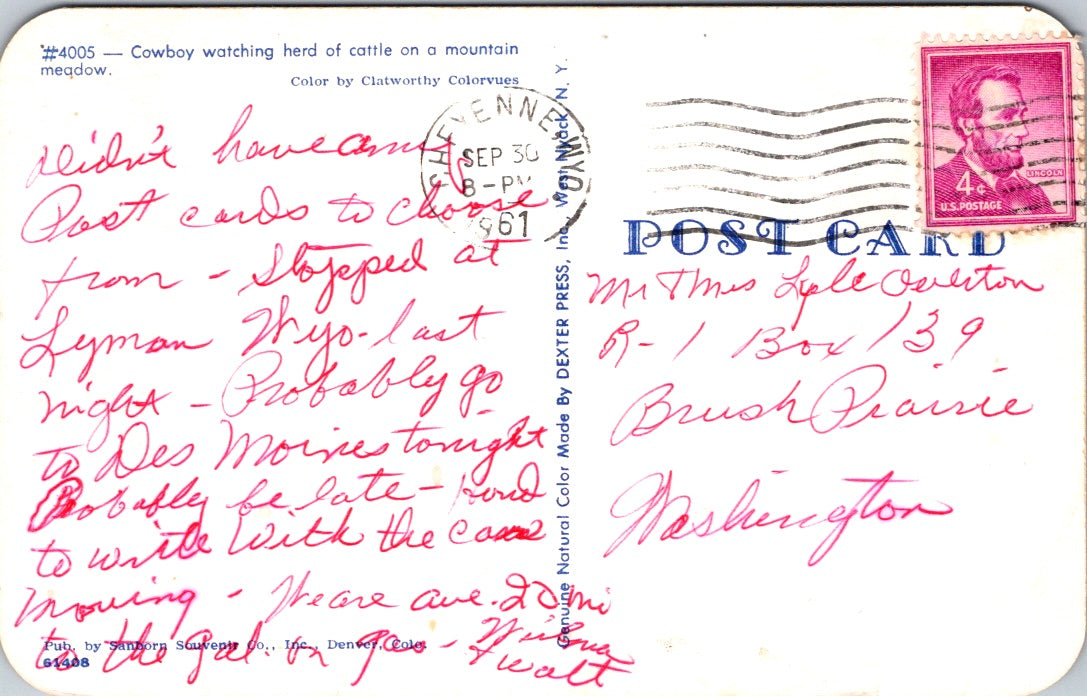 #4005 — Cowboy watching herd of cattle on a mountain
meadow.
Color by Clatworthy Colorvues
Didn't have any
Post cards to choose
from - Stopped at
Lyman Wyo - last
night - Probably go
to Des Moines tonight
Probably be late -
to write with the
moving - We are ave. 20 mi
to the gal. on gas - Wilma
& Walt
Pub. by Sanborn Souvenir Co., Inc., Denver, Colo.
61408
Genuine Natural Color Made By DEXTER PRESS, Inc., West Nyack, N. Y.
CHEYENNE WYO
SEP 30
8 - PM
1961
LINCOLN
4¢
U.S. POSTAGE
POST CARD
Mr & Mrs Lyle Overton
R - 1 Box 139
Brush Prairie
Washington